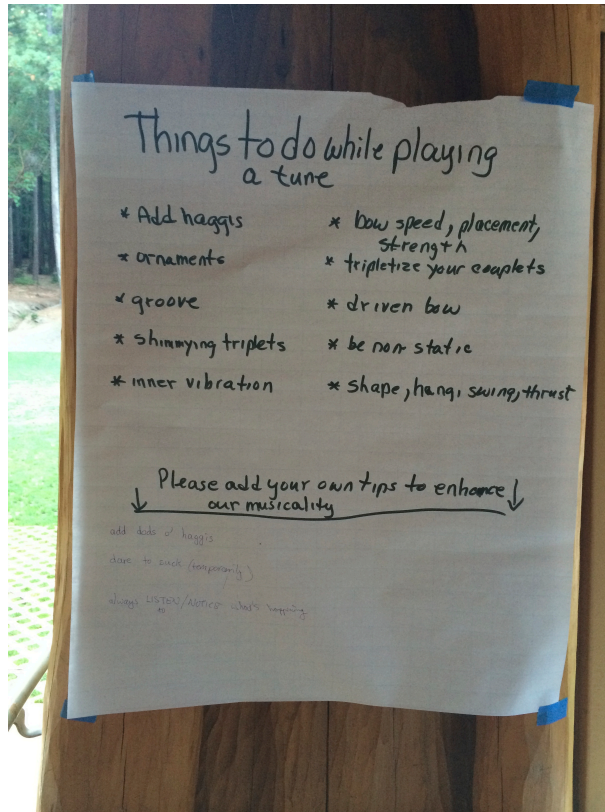 Things to do while playing
a tune
* Add haggis
* ornaments
* groove
* shimmying triplets
* inner vibration
* bow speed, placement,
strength
* tripletize your couplets
* driven bow
* be non static
* shape, hang, swing, thrust
Please add your own tips to enhance
our musicality
add dads o' haggis
dare to suck (temporarily)
always LISTEN/NOTICE what's happening